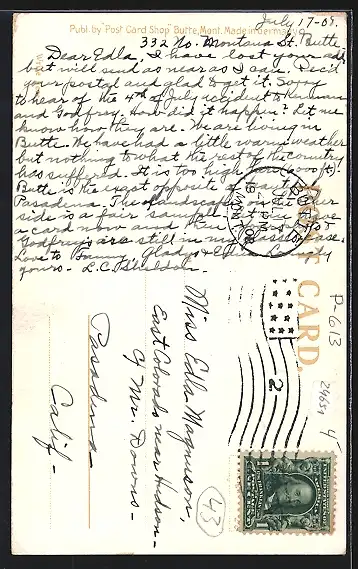 July 17-09.
Publ. by "Post Card Shop" Butte, Mont. Made in Germany
332 No. Montana St. Butte
Dear Edla, I have lost your add.
but will send as near as I can. Rec'd
your postal and glad to get it. Sorry
to hear of the 4th of July accident to
and Godfrey. How did it happen? Let me
know how they are. We are living in
Butte. We have had a little warm weather
but nothing to what the rest of the country
has suffered. It is too high here
Butte is the exact opposite of
Pasadena. The landscape on the other
side is a fair sample.
a card now and then
Godfrey's are still in my
Love to Fanny, Gladys &
yours - L.C. Sheldon.
POST CARD.
BUTTE
MONT.
P-613
2465x
Miss Edla Magnuson,
East Colorado near Hudson -
c/ Mr. Downs -
Pasadena
Calif -
43
2